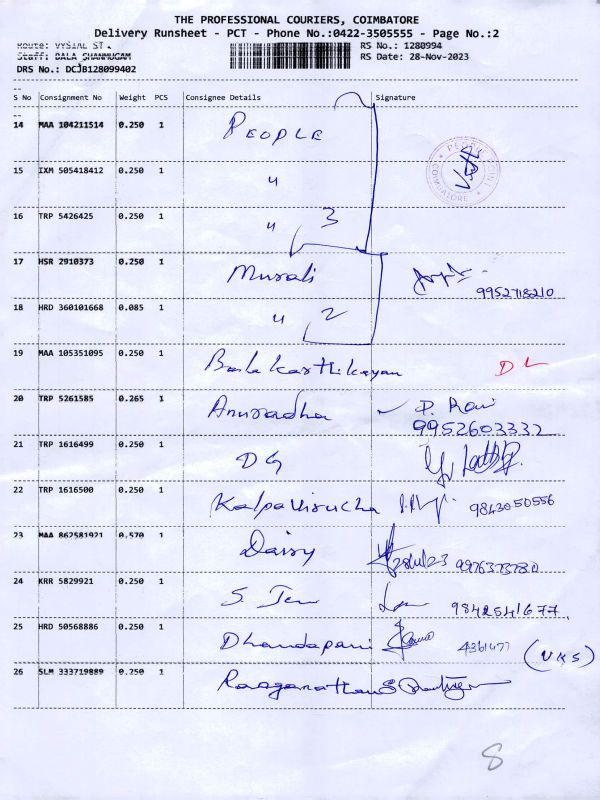 THE PROFESSIONAL COURIERS, COIMBATORE
Delivery Runsheet - PCT - Phone No.:0422-3505555 - Page No.:2
Route: VYSIAL ST RS No.: 1280994
Staff: BALA SHANMUGAM RS Date: 28-Nov-2023
DRS No.: DCJB128099402
--
S No Consignment No Weight PCS Consignee Details Signature
--
14 MAA 104211514 0.250 1 PEOPLE
PEOPLE POINT COIMBATORE
15 IXM 505418412 0.250 1 "
16 TRP 5426425 0.250 1 " 3
17 HSR 2910373 0.250 1 Murali 9952718210
18 HRD 360101668 0.085 1 " 2
19 MAA 105351095 0.250 1 Balakarthikeyan DL
20 TRP 5261585 0.265 1 Anuradha P. Ravi
9952603332
21 TRP 1616499 0.250 1 DG
22 TRP 1616500 0.250 1 Kalpavirucha 9843050556
23 MAA 862581921 0.570 1 Daisy 28/11/23 9976373780
24 KRR 5829921 0.250 1 S. 9842541677
25 HRD 50568886 0.250 1 Dhandapani 4361477 (VKS)
26 SLM 333719889 0.250 1 Raaganathan
8